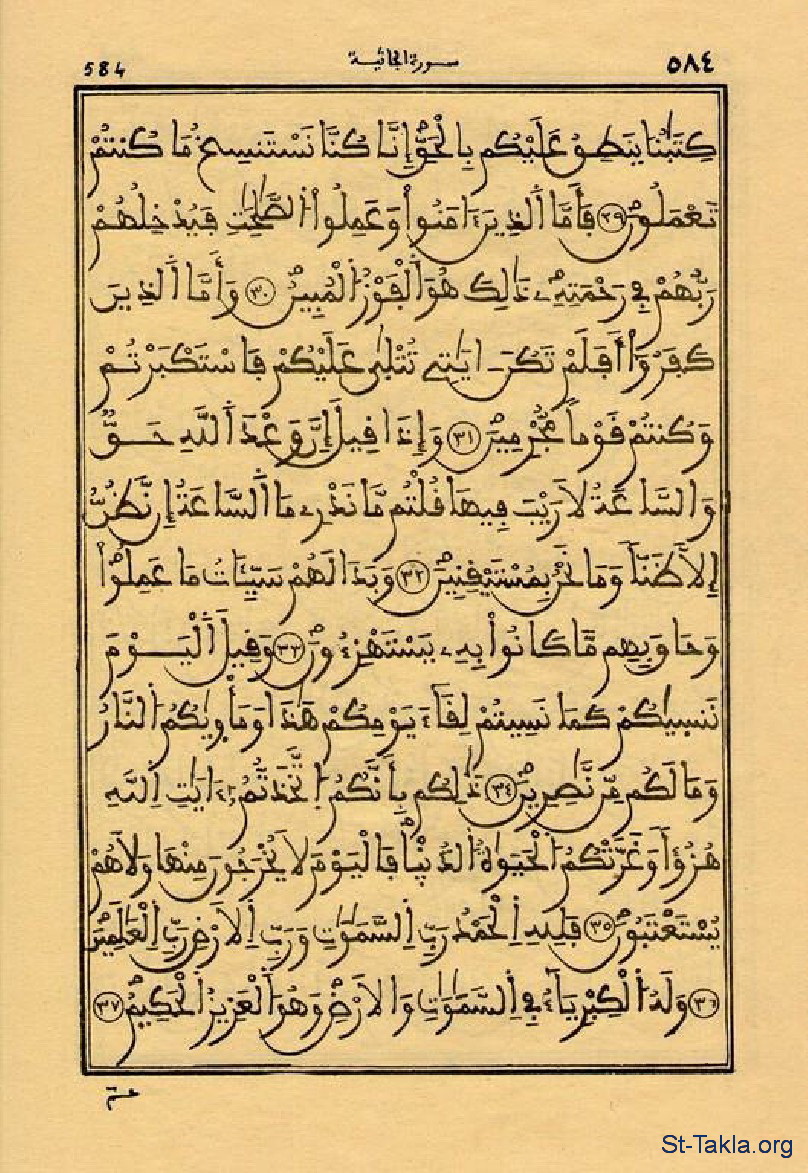 584 سورة الجاثية ٥٨٤
كِتَٰبُنَا يَنطِقُ عَلَيْكُم بِالْحَقِّ إِنَّا كُنَّا نَسْتَنسِخُ مَا كُنتُمْ
تَعْمَلُونَ ٢٩ فَأَمَّا الَّذِينَ ءَامَنُواْ وَعَمِلُواْ الصَّٰلِحَٰتِ فَيُدْخِلُهُمْ
رَبُّهُمْ فِي رَحْمَتِهِۦ ذَٰلِكَ هُوَ الْفَوْزُ الْمُبِينُ ٣٠ وَأَمَّا الَّذِينَ
كَفَرُوٓاْ أَفَلَمْ تَكُنَ ـ ايَٰتِے تُتْلَىٰ عَلَيْكُمْ فَاسْتَكْبَرْتُمْ
وَكُنتُمْ قَوْماً مُّجْرِمِينَ ٣١ وَإِذَا قِيلَ إِنَّ وَعْدَ اللَّهِ حَقٌّ
وَالسَّاعَةُ لَا رَيْبَ فِيهَا قُلْتُم مَّا نَدْرِے مَا السَّاعَةُ إِن نَّظُنُّ
إِلَّا ظَنّاً وَمَا نَحْنُ بِمُسْتَيْقِنِينَ ٣٢ وَبَدَا لَهُمْ سَيِّـَٔاتُ مَا عَمِلُواْ
وَحَاقَ بِهِم مَّا كَانُواْ بِهِۦ يَسْتَهْزِءُونَ ٣٣ وَقِيلَ الْيَوْمَ
نَنسَيٰكُمْ كَمَا نَسِيتُمْ لِقَآءَ يَوْمِكُمْ هَٰذَا وَمَأْوَيٰكُمُ النَّارُ
وَمَا لَكُم مِّن نَّٰصِرِينَ ٣٤ ذَٰلِكُم بِأَنَّكُمُ اتَّخَذتُّمُۥٓ ءَايَٰتِ اللَّهِ
هُزُؤاً وَغَرَّتْكُمُ الْحَيَوٰةُ الدُّنْيَا فَالْيَوْمَ لَا يُخْرَجُونَ مِنْهَا وَلَا هُمْ
يُسْتَعْتَبُونَ ٣٥ فَلِلهِ الْحَمْدُ رَبِّ السَّمَٰوَٰتِ وَرَبِّ الْأَرْضِ رَبِّ الْعَٰلَمِينَ
٣٦ وَلَهُ الْكِبْرِيَآءُ فِي السَّمَٰوَٰتِ وَالْأَرْضِ وَهُوَ الْعَزِيزُ الْحَكِيمُ ٣٧
St-Takla.org